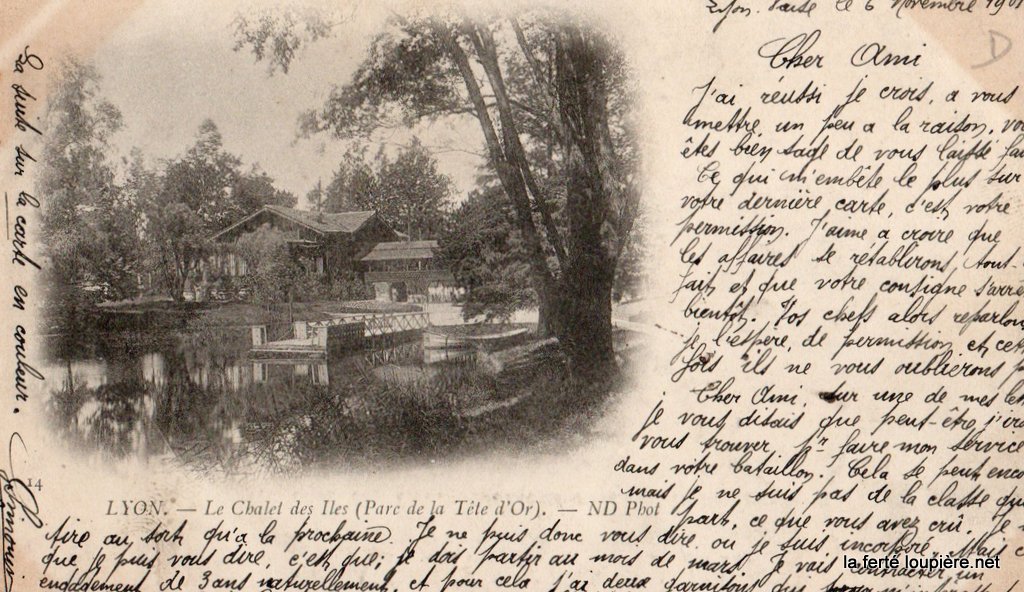 Lyon. Vaise le 6 Novembre 190
D
Cher Ami
J'ai réussi je crois, a vous
mettre un peu a la raison, vo
êtes bien sage de vous laissé fai
Ce qui m'embête le plus sur
votre dernière carte, c'est votre
permission. J'aime a croire que
les affaires se rétablirons, tout-
fait et que votre consigne s'arrê
bientôt. Vos chefs alors reparlon
je l'espère, de permission et cet
fois ils ne vous oublierons p
Cher Ami, sur une de mes le
je vous disais que peut-être j'ir
vous trouver pr faire mon service
dans votre bataillon. Cela se peut enco
mais je ne suis pas de la classe qu
part, ce que vous avez crû. Je
tire au sort qu'a la prochaine. Je ne puis donc vous dire ou je suis incorporé. Mais c
que je puis vous dire, c'est que; je dois partir au mois de mars. Je vais contracter un
engagement de 3 ans naturellement et pour cela j'ai deux garnisons qui
La suite sur la carte en couleur.
Simonin
14
LYON. — Le Chalet des Iles (Parc de la Tête d'Or). — ND Phot
la ferté loupière.net